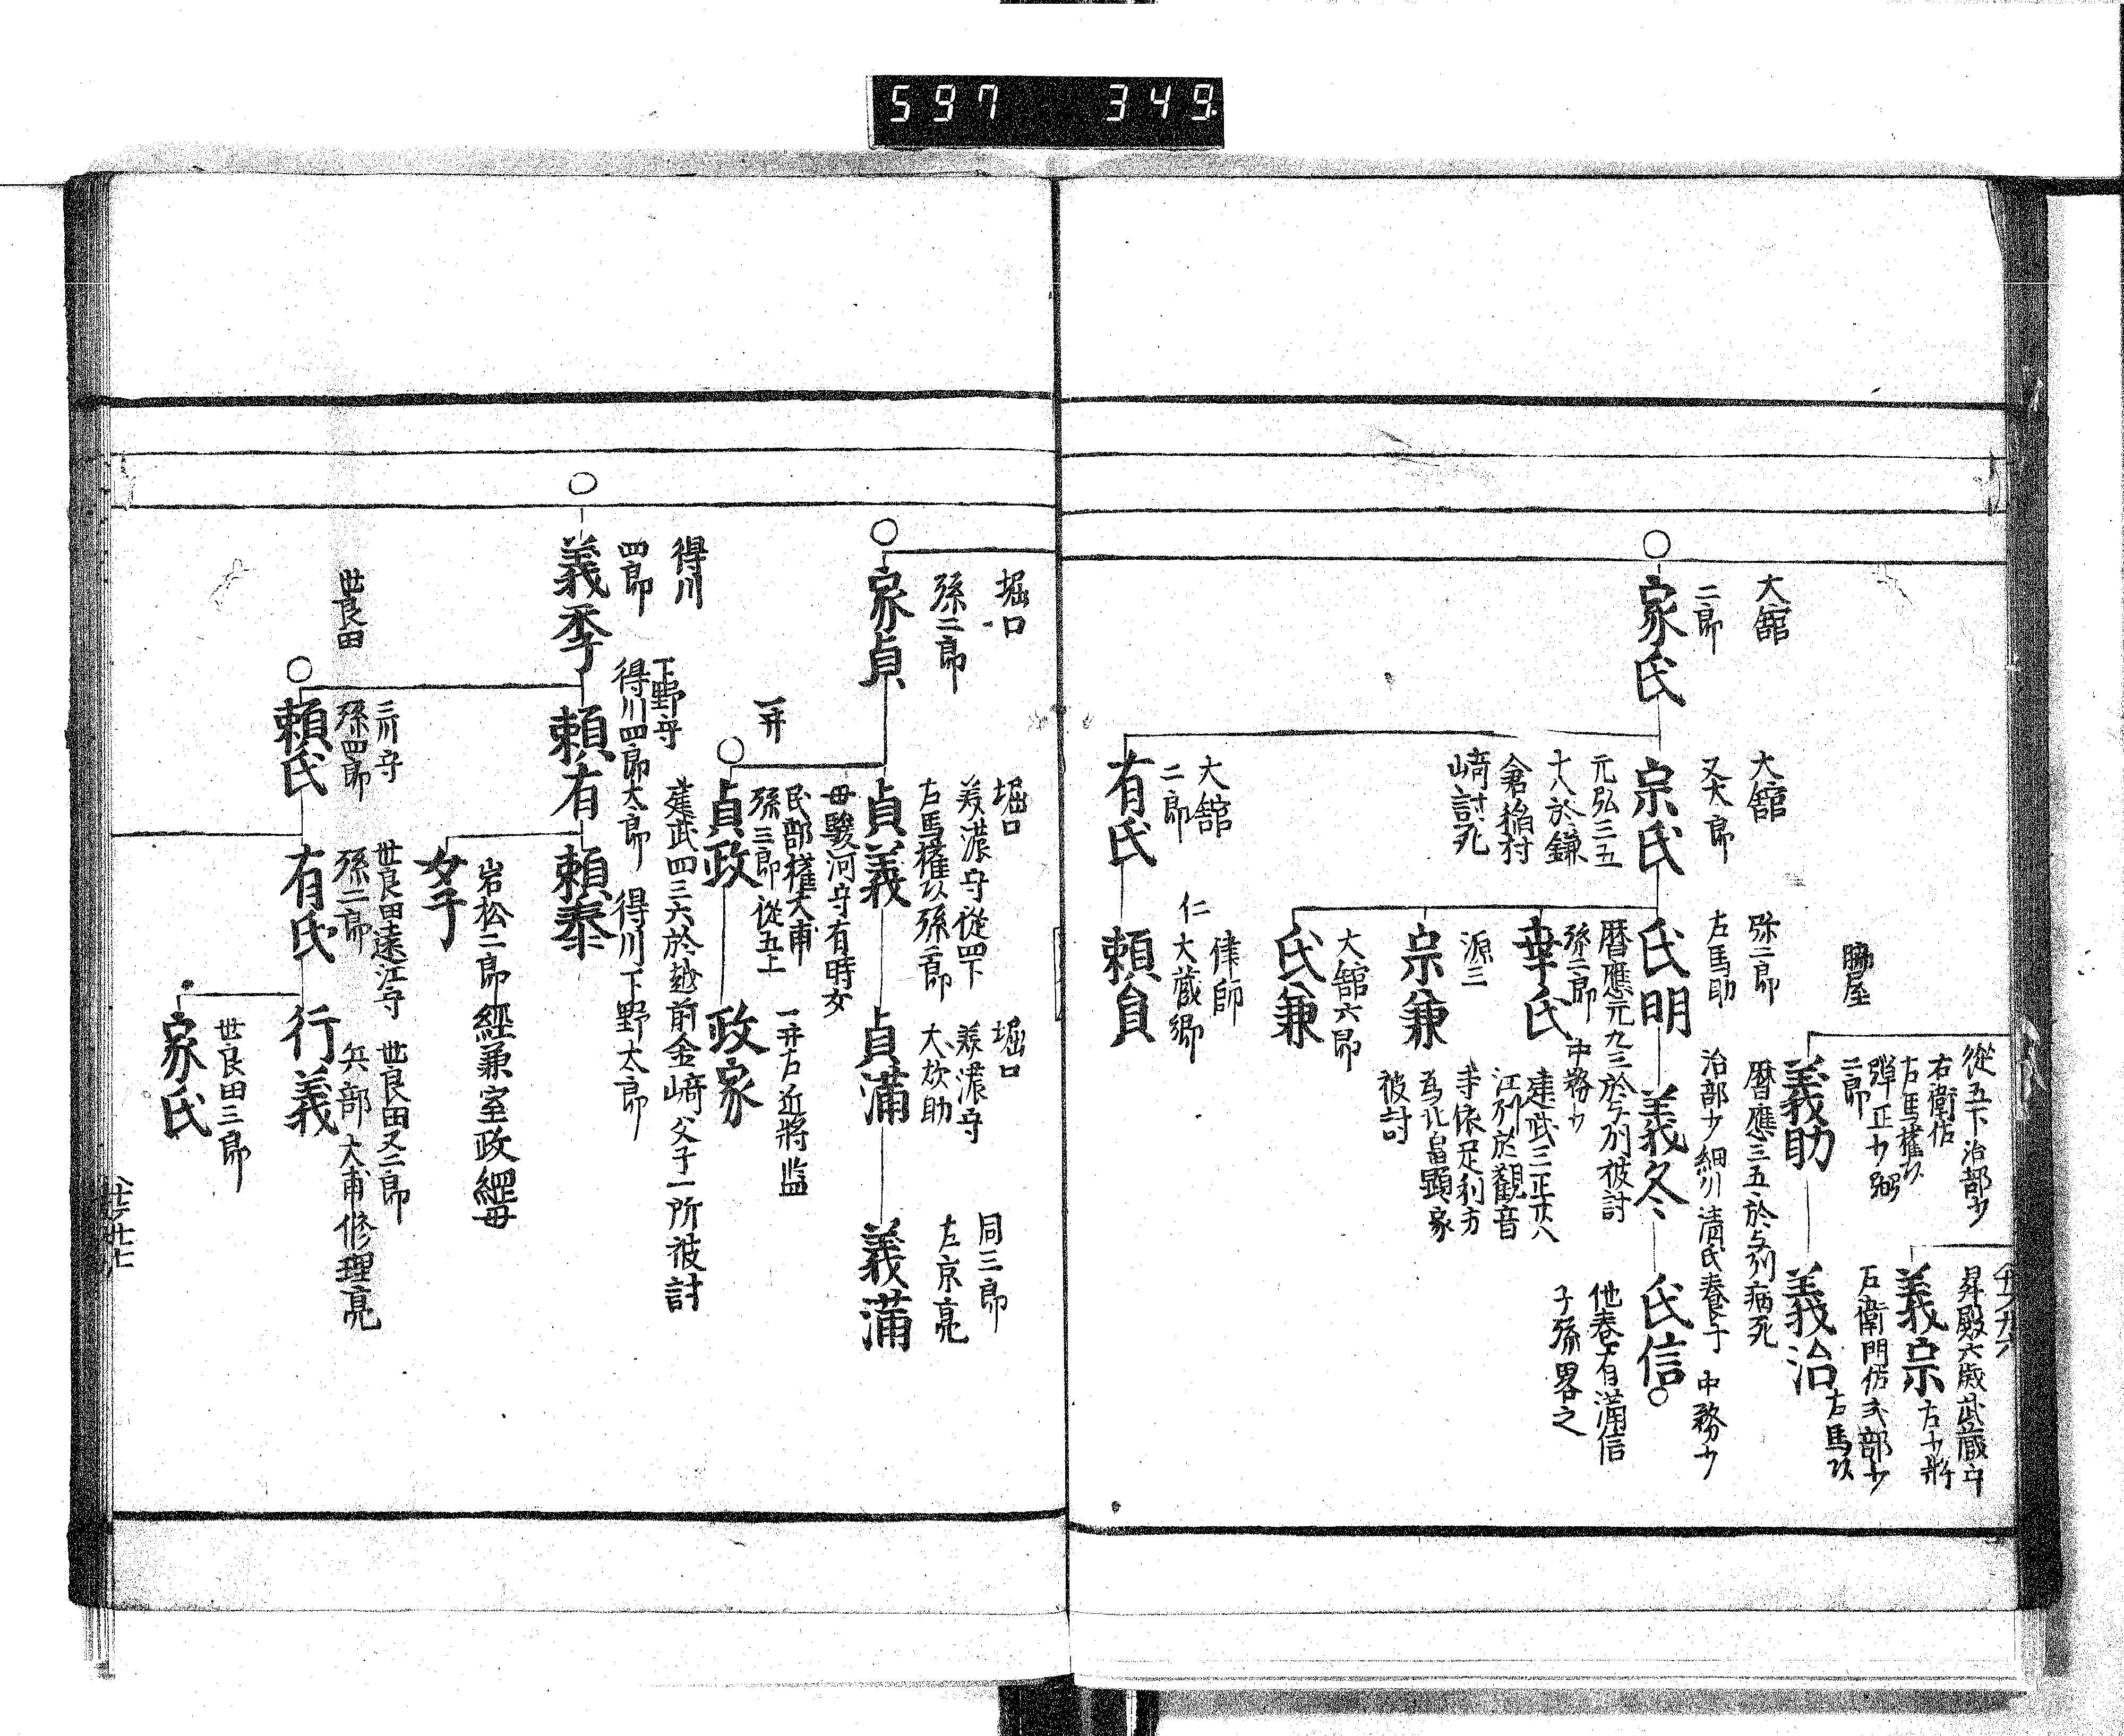 597 349
従五下治部少
右衛佐
左馬権頭
弾正少弼
二郎
脇屋
義助
暦應三五於与列病死
昇殿六歳武蔵守
左少将
義宗
左衛門佐式部少
義治
左馬頭
大舘
二郎
家氏
大舘
又太郎
宗氏
元弘三五
十八於鎌
倉稲村
﨑討死
弥二郎
左馬助
氏明
暦應元九三於与列被討
治部少細川清氏養子
義冬
中務少
氏信
他春有満信
子孫畧之
孫二郎
中務少
幸氏
建武三正十六
江列於観音
寺依足利方
為北畠顕家
被討
源三
宗兼
大舘六郎
氏兼
大舘
二郎
有氏
律師
仁大蔵卿
頼員
堀口
孫二郎
家貞
堀口
美濃守従四下
右馬権頭孫二郎
貞義
母駿河守有時女
堀口
美濃守
大炊助
貞満
同三郎
左京亮
義満
一井
民部権大甫
孫三郎従五上
貞政
建武四三六於越前金﨑父子一所被討
一井右近将监
政家
得川
四郎
義季
下野守
得川四郎太郎
頼有
得川下野太郎
頼泰
岩松二郎經兼室政經母
女子
世良田
三川守
孫四郎
頼氏
世良田遠江守
孫二郎
有氏
世良田又二郎
兵部大甫修理亮
行義
世良田三郎
家氏